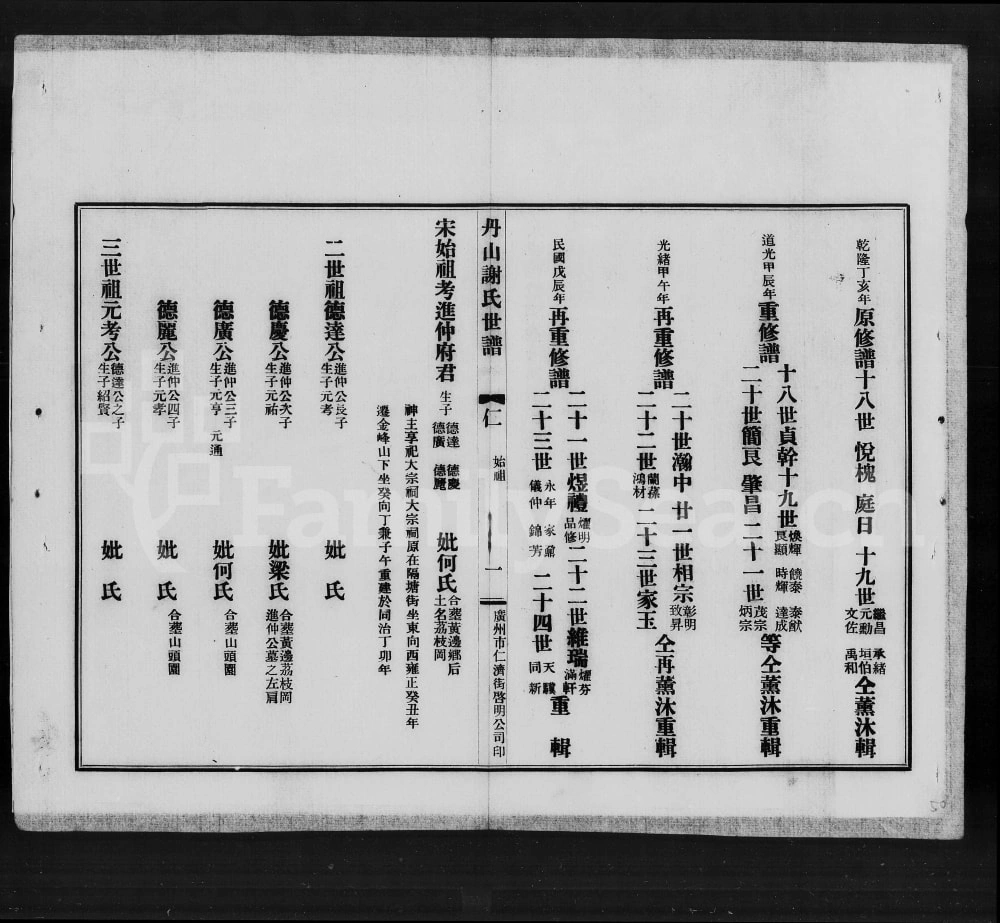 乾隆丁亥年原修譜十八世 悅槐 庭日 十九世繼昌 元勳 文佐 承緒 垣伯 禹和仝薰沐輯
道光甲辰年重修譜十八世貞幹十九世煥輝 良顯 饒泰 時輝 泰猷 達成
二十世簡良 肇昌二十一世茂宗 炳宗等仝薰沐重輯
光緒甲午年再重修譜二十世瀚中 廿一世相宗彰明 致昇
二十二世蘭蓀 鴻材二十三世家玉仝再薰沐重輯
民國戊辰年再重修譜二十一世煜禮燿明 品修二十二世維瑞燿芬 滿軒
二十三世永年 儀仲 家鼐 錦芳二十四世天驥 同新重輯
丹山謝氏世譜 仁 始祖 一 廣州市仁濟街啓明公司印
宋始祖考進仲府君生子德達 德慶 德廣 德麗 妣何氏合塟黃邊鄉后土名荔枝岡
神主享祀大宗祠大宗祠原在隔塘街坐東向西雍正癸丑年
遷金峰山下坐癸向丁兼子午重建於同治丁卯年
二世祖德達公進仲公長子生子元考 妣 氏
德慶公進仲公次子生子元祐 妣梁氏合塟黃邊荔枝岡進仲公墓之左肩
德廣公進仲公三子生子元亨 元通 妣何氏合塟山頭園
德麗公進仲公四子生子元孝 妣 氏合塟山頭園
三世祖元考公德達公之子生子紹賢 妣 氏
FamilySearch